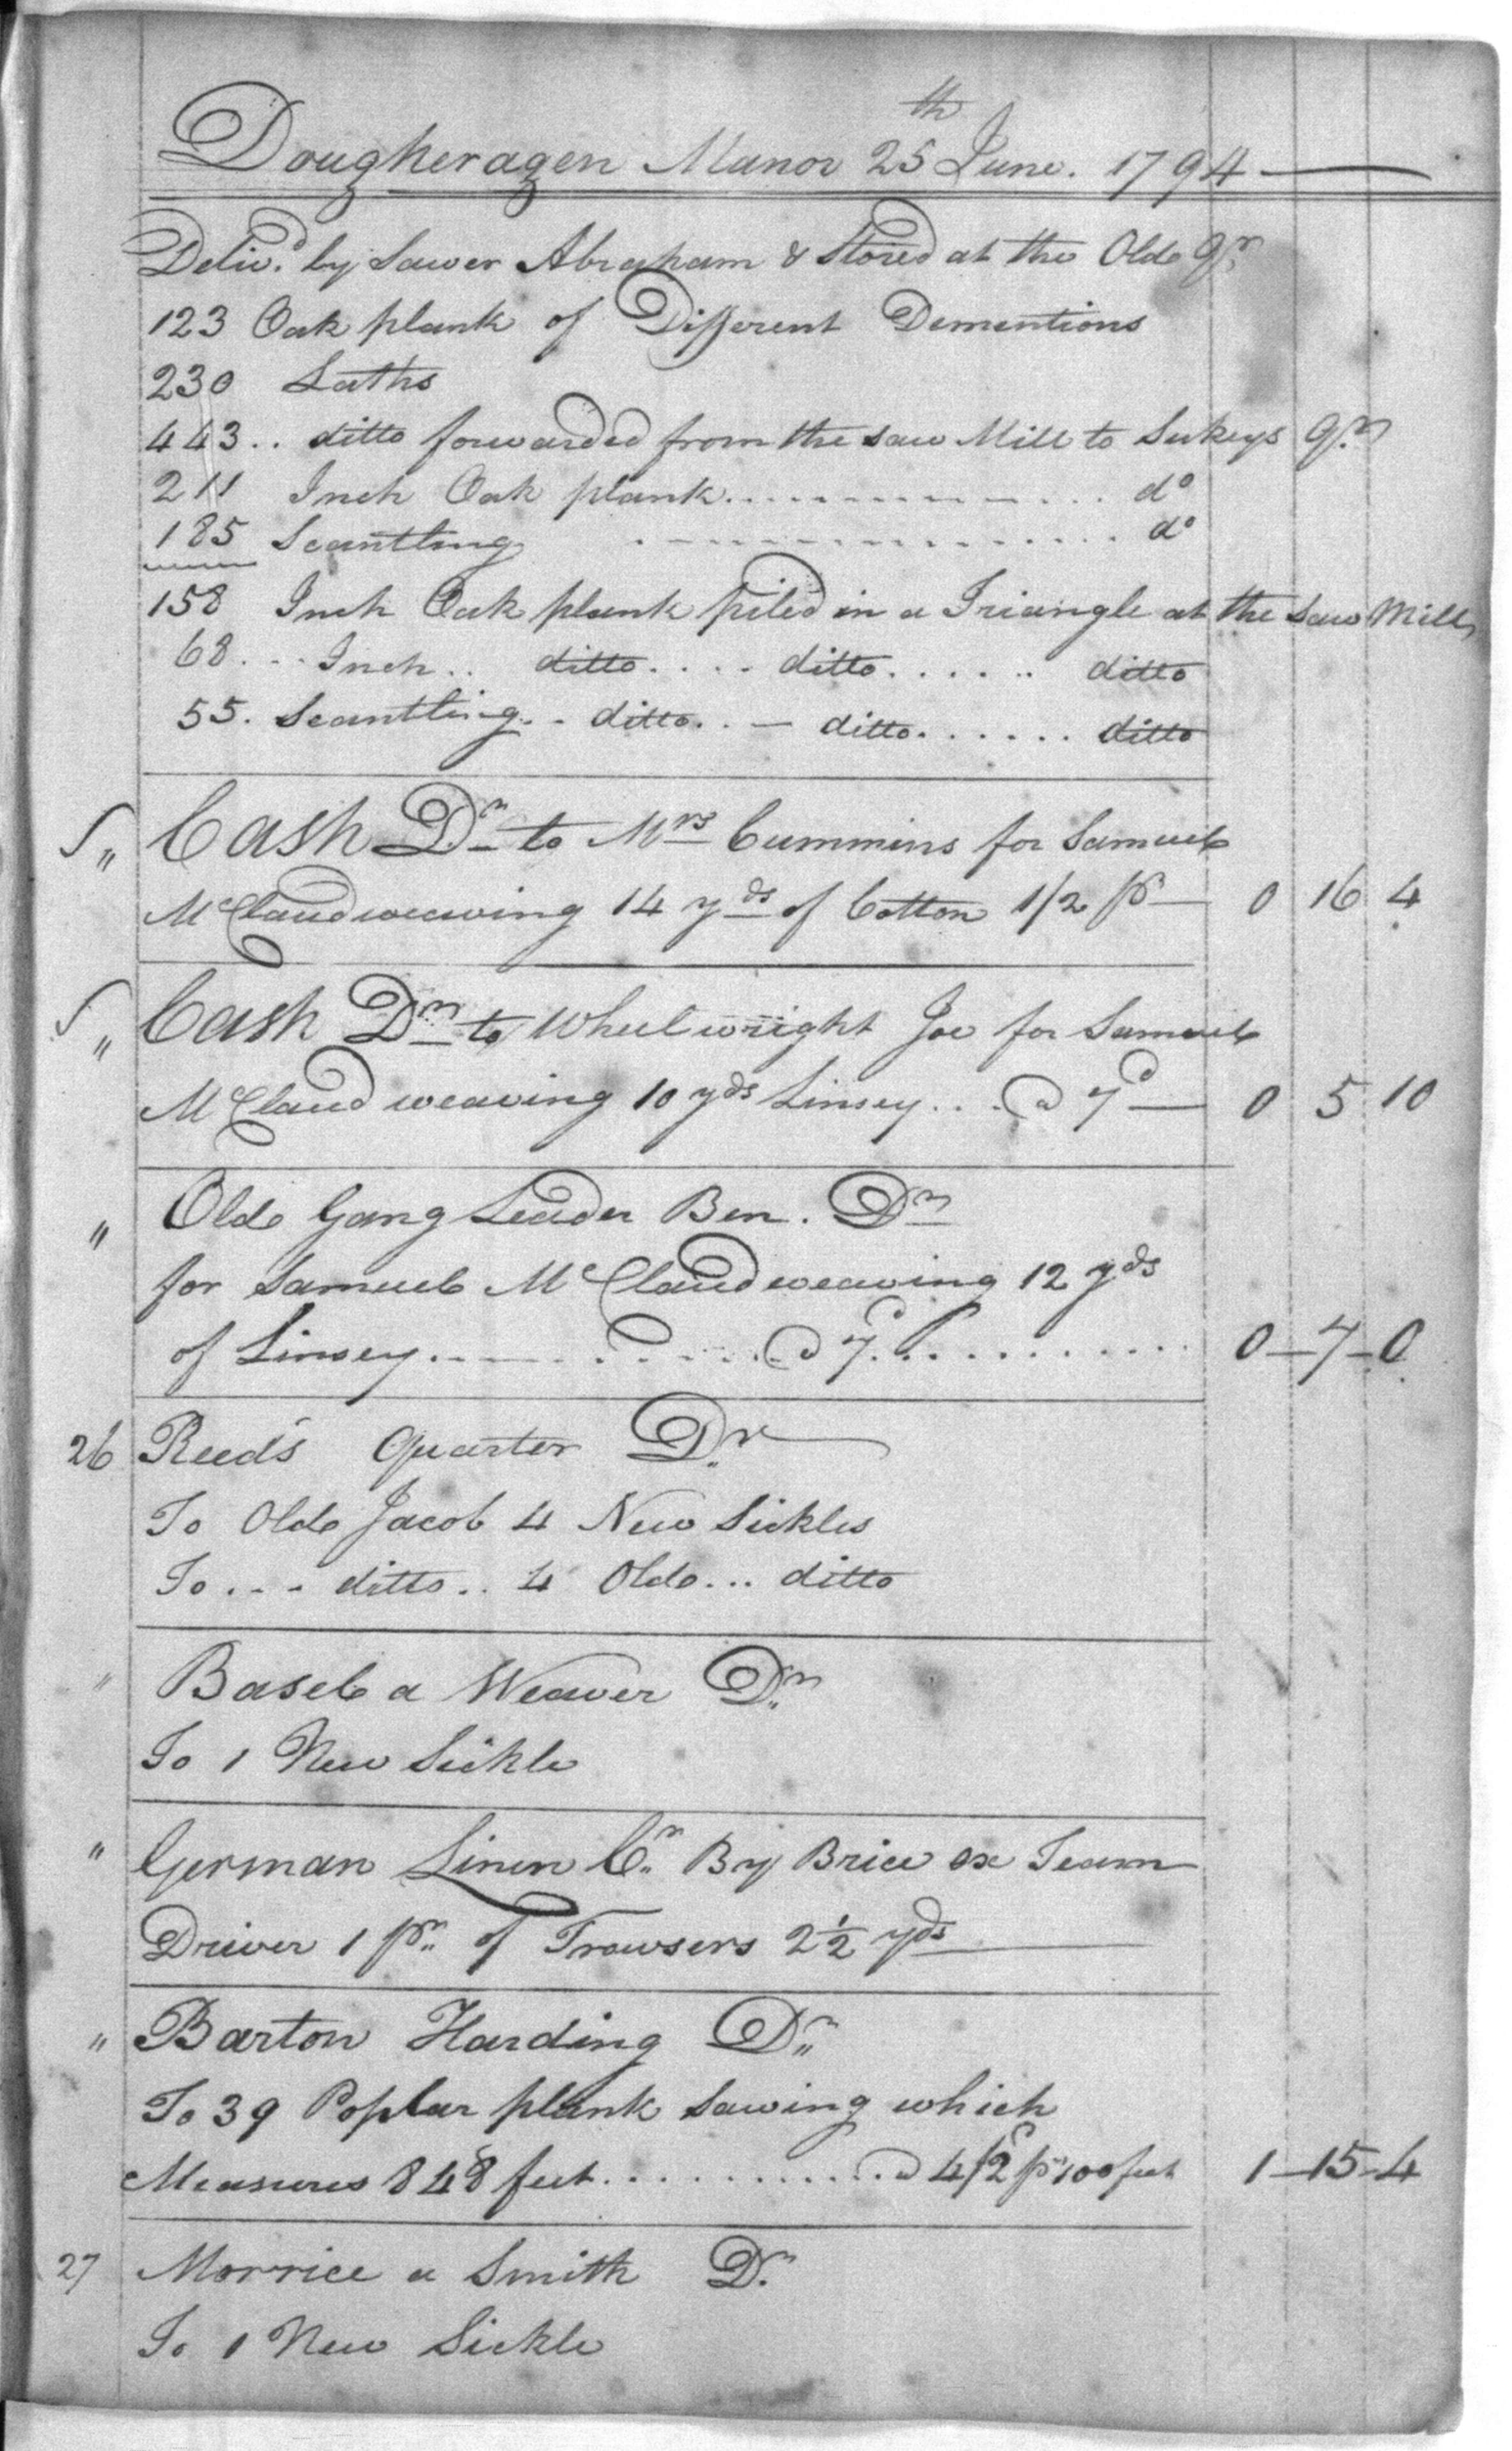 Dougheragen Manor 25th June. 1794
Deliv.d by Sawer Abraham & Stored at the Olde Qr.
123 Oak plank of Different Dementions
230 Laths
443.. ditto forwarded from the saw Mill to Sukeys Qr.
211 Inch Oak plank............... do
185 Scantling ............... do
158 Inch Oak plank piled in a Triangle at the Saw Mill
68... Inch.. ditto.... ditto...... ditto
55. Scantling.. ditto.. - ditto...... ditto
" Cash Dr to Mrs Cummins for Samuel
McClaud weaving 14 yds of Cotton 1/2 pr — 0 16 4
" Cash Dr to Wheelwright Joe for Samuel
McClaud weaving 10 yds Linsey... @ 7d — 0 5 10
" Olde Gang Leader Ben. Dr
for Samuel McClaud weaving 12 yds
of Linsey............ @ 7d........... 0-7-0
26 Reed's Quarter Dr
To Olde Jacob 4 New Sickles
To... ditto.. 4 Olde... ditto
" Basel a Weaver Dr
To 1 New Sickle
" German Linen Cr. By Brice ox Team
Driver 1 pr. of Trowsers 2½ yds
" Barton Harding Dr
To 39 Poplar plank Sawing which
Measures 848 feet............ @ 4/2 pr 100 feet 1-15-4
27 Morrice a Smith Dr.
To 1 New Sickle